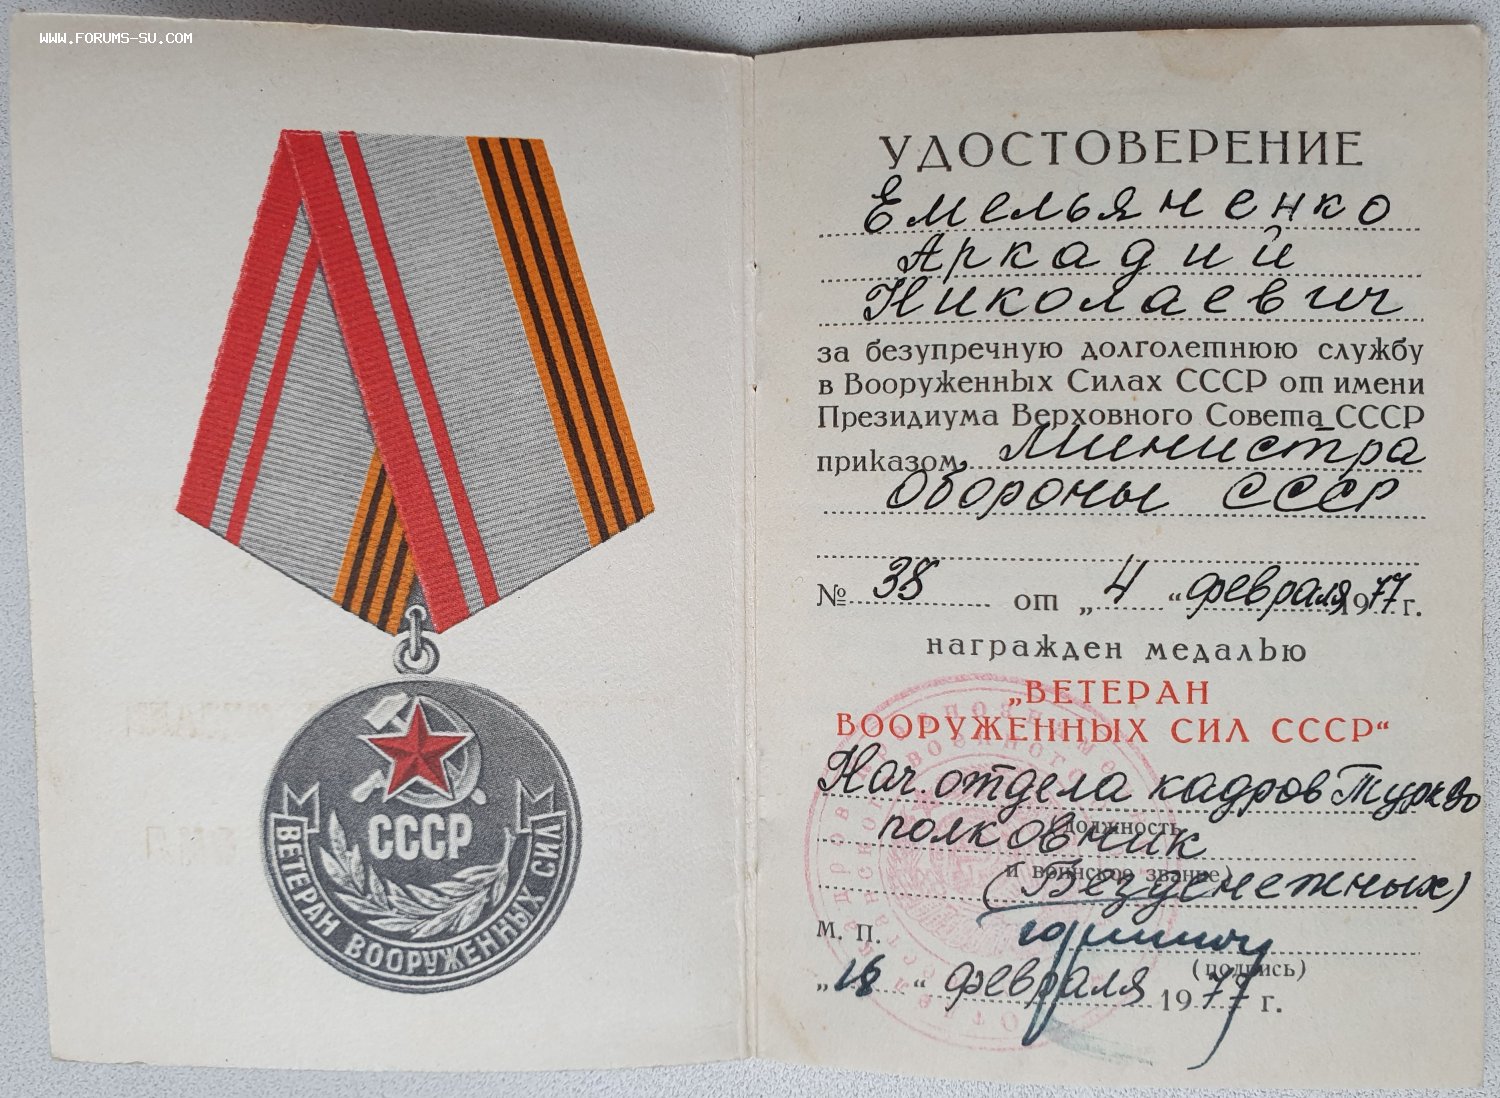 WWW.FORUMS-SU.COM
СССР
ВЕТЕРАН ВООРУЖЕННЫХ СИЛ
УДОСТОВЕРЕНИЕ
Емельяненко
Аркадий
Николаевич
за безупречную долголетнюю службу
в Вооруженных Силах СССР от имени
Президиума Верховного Совета СССР
приказом Министра
Обороны СССР
№ 38 от „4“ февраля 1977 г.
награжден медалью
„ВЕТЕРАН
ВООРУЖЕННЫХ СИЛ СССР“
Нач. отдела кадров ТуркВО
(должность
полковник
и воинское звание)
(Безденежных)
М. П.
(подпись)
„18“ февраля 1977 г.